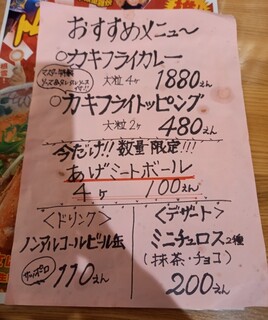 おすすめメニュ〜
○カキフライカレー
大粒 4ヶ 1880えん
○カキフライトッピング
大粒 2ヶ 480えん
今だけ!! 数量限定!!!
あげミートボール
4ヶ 100えん
<ドリンク>
ノンアルコールビール缶
サッポロ 110えん
<デザート>
ミニチュロス2種
(抹茶・チョコ)
200えん